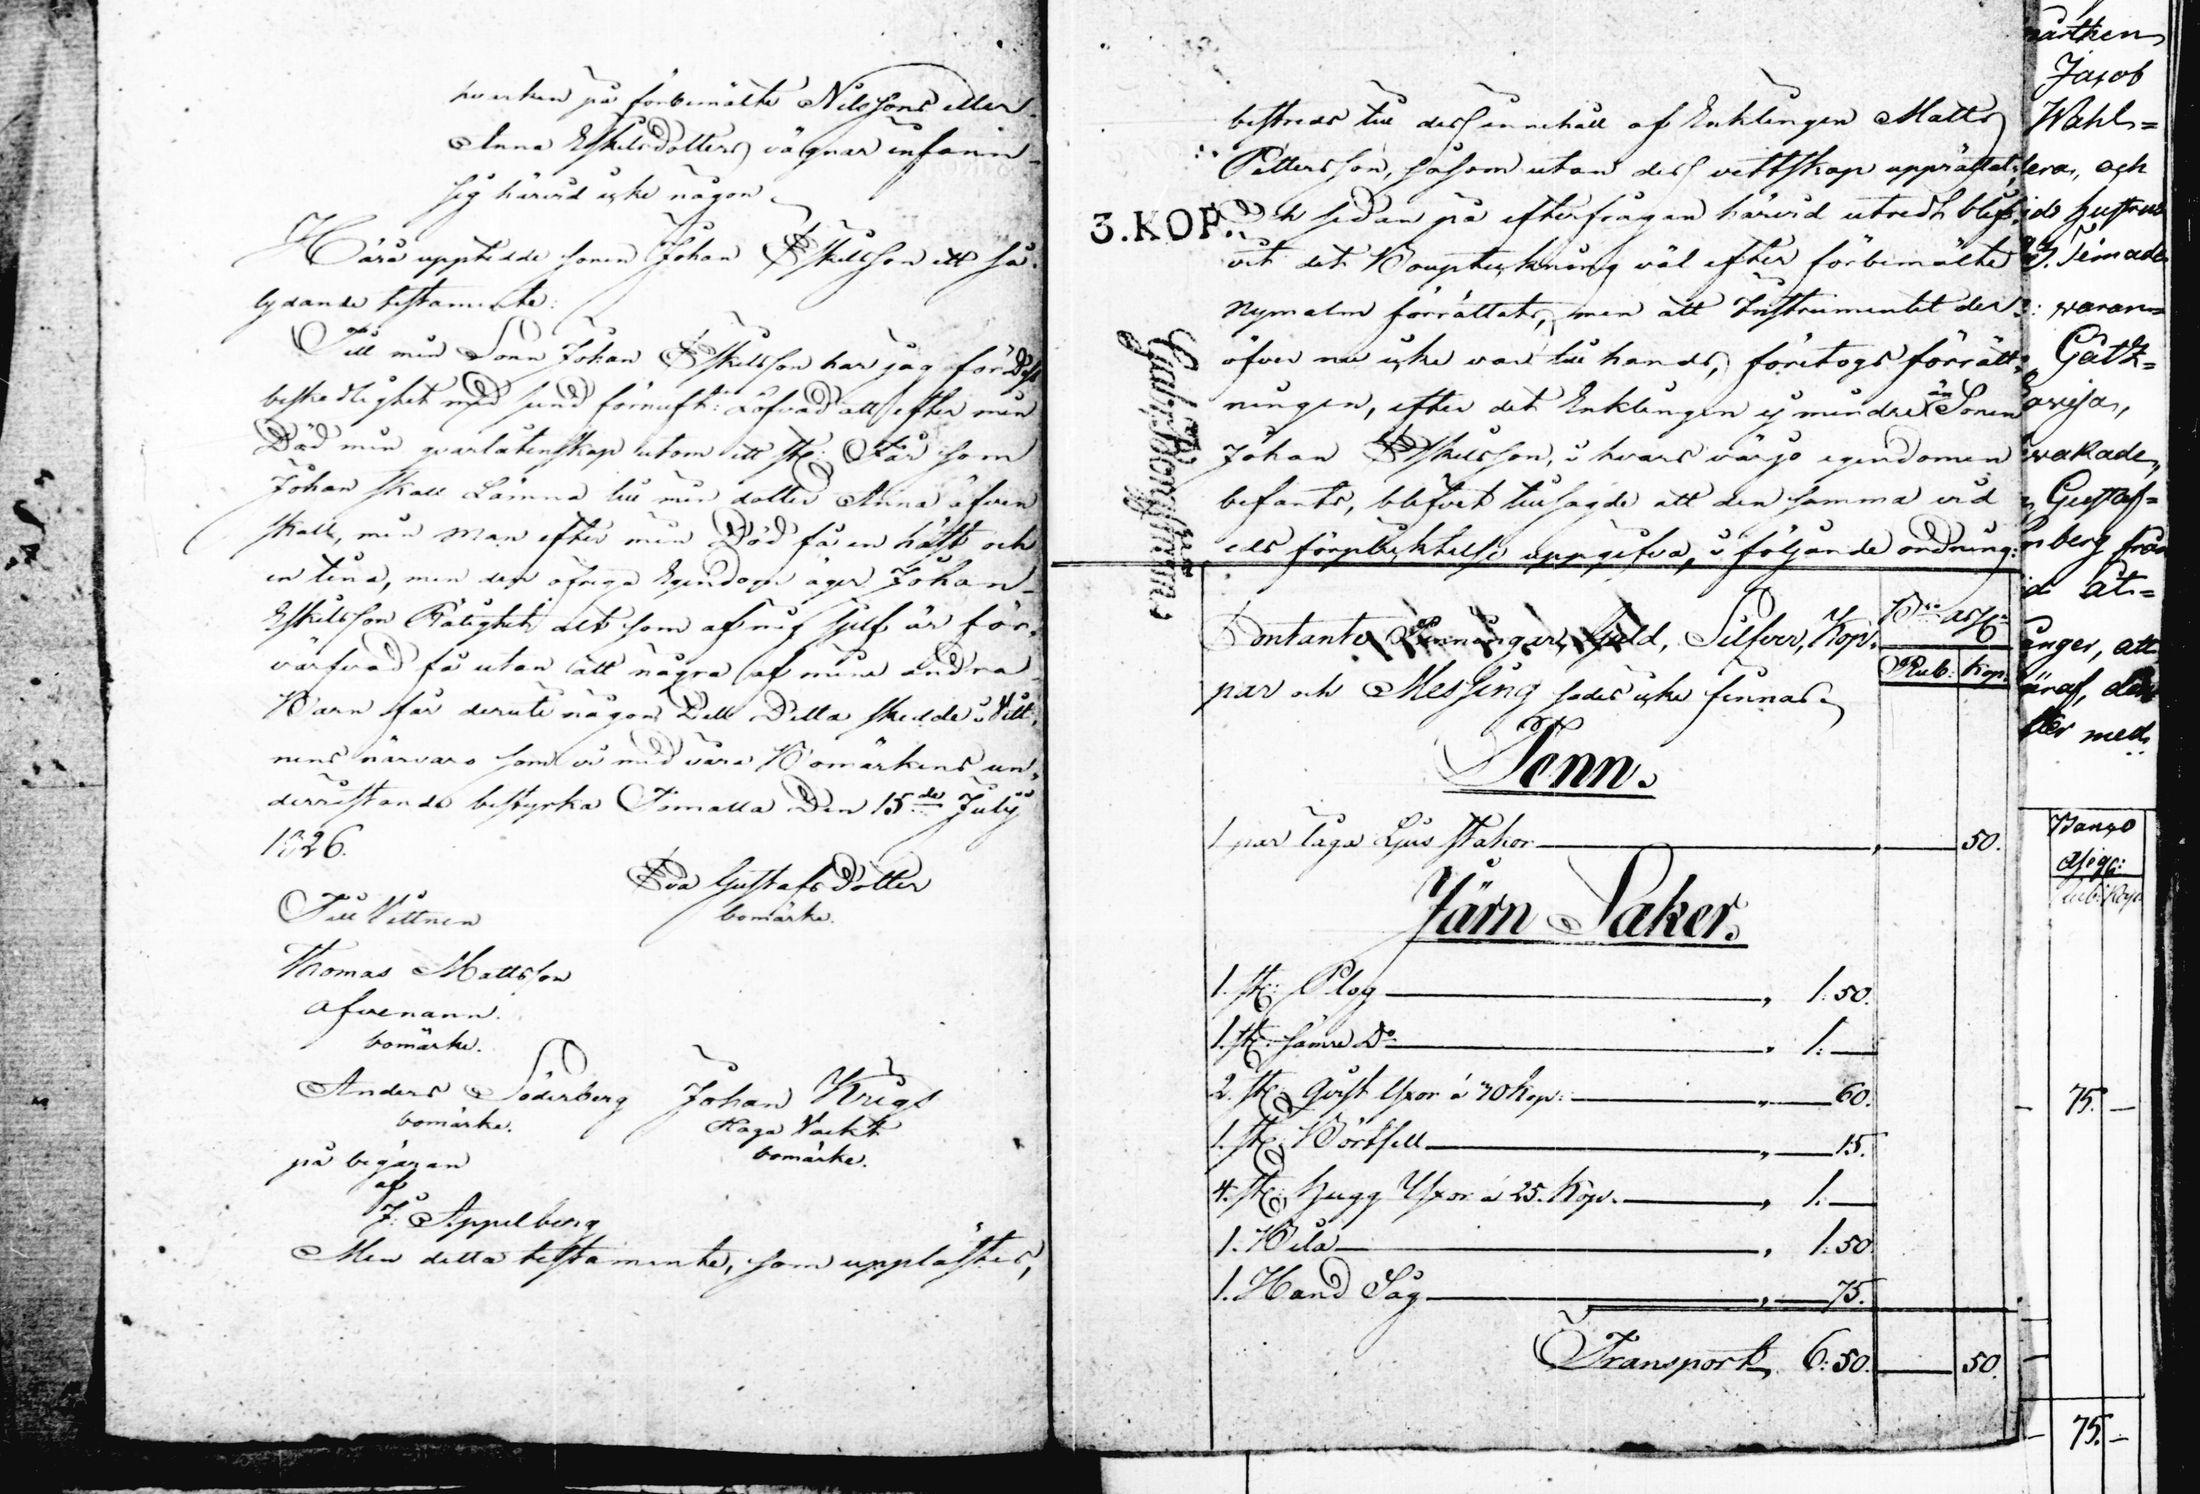 hvarken på förbemälte Nilssons eller
Anna Eskilsdotters vägnar infann
sig härvid icke någon
Härå upptedde sonen Johan Eskilsson ett så
lydande testamente:
Till min Sonn Johan Eskilsson har jag för Dess
beskedlighet med sund förnuft: Lofvad att efter min
Död min qvarlåtenskap utom ett st: Får som
Johan skall Lämna till min dotter Anna äfven
skall, min Man efter min Död få en häst och
en tina, men den öfriga Egendom äger Johan
Eskilsson Rätighet alt som af mig sjelf är för-
värfvad få utan att några af mine andra
Barn får deruti någon Dell Detta skedde i Vitt-
nens närvaro som vi med våra Bomärkens un-
derristande bestyrka Tömalla Den 15de July
1826.
Eva Gustafs Dotter
bomärke.
Till Vittnen
Thomas Mattsson
afvenann.
bomärke.
Anders Söderberg Johan Krigs
bomärke. Haga Vackt
bomärke.
på begäran
af
J: Appelberg
Men detta testamente, som upplästes,
bestreds till dess innehåll af Enklingen Matts
Pettersson, såsom utan dess vettskap upprättat;
3.KOP.
Och sedan på efterfrågan härvid utredt blif-
vit det Bouptekning väl efter förbemälte
Nymalm förrättats, men att Instrumentet der-
öfver nu icke var till hands, företogs förrätt-
ningen, efter det Enklingen ej mindre än Sonen
Johan Eskilsson, i hvars värjo egendomen
befants, blifvet tillsagde att den samma vid
eds förplicktelse uppgifva, i följande ordning:
Bco Assig:
Contante Penningar, Guld, Silfver, Kop-
Rub: Kop:
par och Messing sades icke finnas
Tenn.
1 par låga Ljus stakar 50.
Järn Saker.
1. st: Plog 1: 50.
1. st: sämre Do 1: —
2. st: Qvist Yxor á 30 Kop: 60.
1. st: Börtfill 15.
4. st: Hugg Yxor á 25. Kop. 1: —
1. Bila 1: 50
1. Hand Såg 75.
Transport 6: 50. 50.
Jacob
Wahl=
lera, och
waran=
Gatk=
wakade,
Gustaf=
nberg från
åt=
enger, att
äraf, den
ter med
Banco
Assig:
Rub: Kop:
75. —
75. —